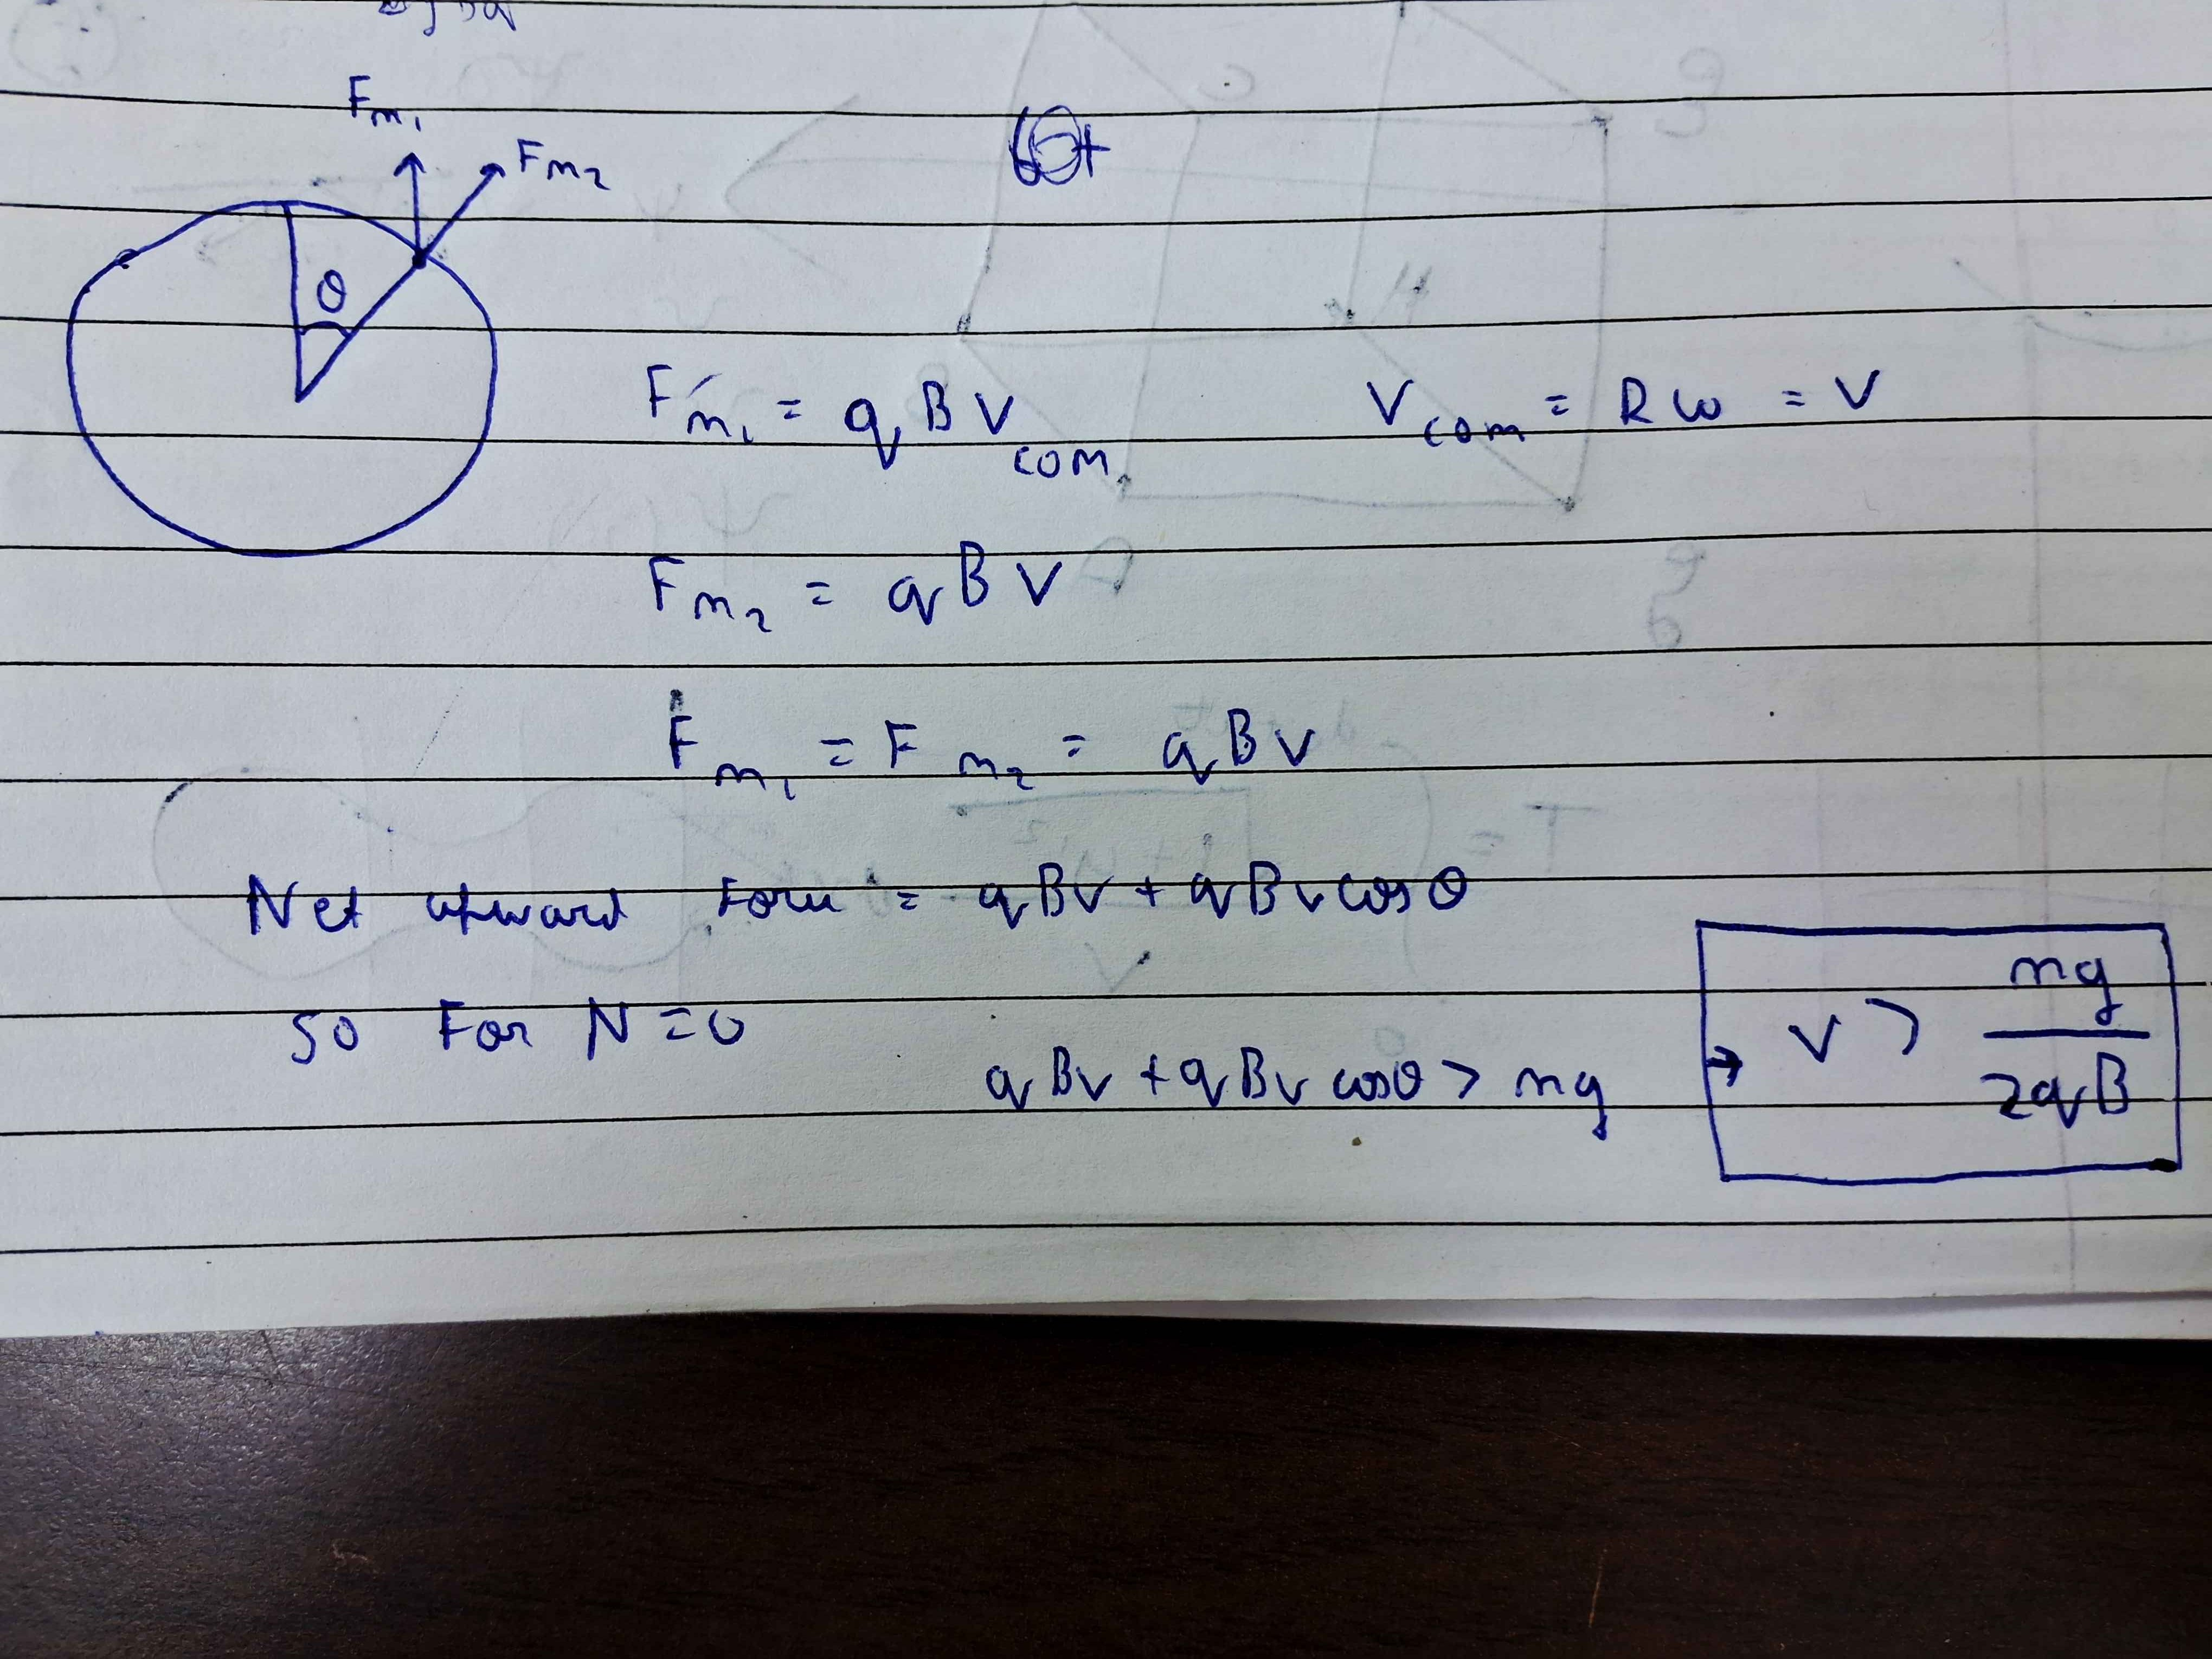 Fm₁
Fm₂
θ
Fm₁ = qBVcom
Vcom = Rω = V
Fm₂ = qBV
Fm₁ = Fm₂ = qBV
Net upward = qBv + qBv cosθ
so For N=0
qBv + qBv cosθ > mg
→ V > mg/2qB